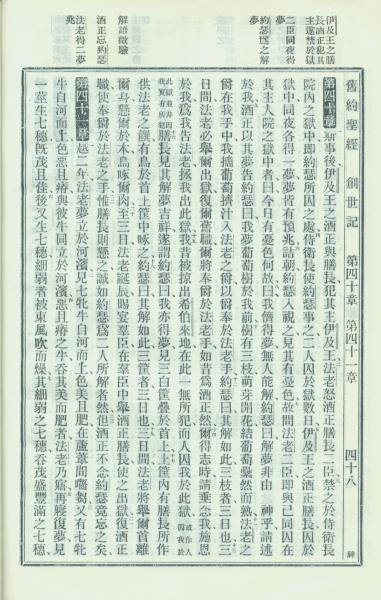 伊及王之膳
長酒正犯其
主遂禁於獄
二臣同夜得
夢
約瑟爲之解
夢
解語徵驗
酒正忘約瑟
法老得二夢
兆
舊約聖經 創世記 第四十章 第四十一章 四十八
第四十章 斯事後伊及王之酒正與膳長犯其主伊及王法老怒酒正膳長二臣禁之於侍衛長
院內之獄中即約瑟所囚之處侍衛長使約瑟事之二人囚於獄數日伊及王之酒正膳長囚於
獄中同夜各得一夢夢皆有預兆詰朝約瑟入視之見其有憂色故問法老二臣即與己同囚在
其主人院之獄中者曰今日有憂色何故曰我儕得夢無人能解約瑟曰解夢非由 神乎請述
於我酒正以其夢告約瑟曰我夢葡萄樹於我前樹有三枝萌芽開花結葡萄纍然而熟法老之
爵在我手中我摘葡萄擠汁入法老之爵以爵奉於法老手約瑟曰其解如此三枝者三日也三
日間法老必舉爾出獄復爾舊職爾將奉爵於法老手如昔爲酒正然爾得志時請垂念我施恩
於我爲我告法老拯我出此獄我昔被掠出希伯來地在此一無所犯而人囚我於此獄 或作人囚我於
此獄 膳長見其解夢吉祥遂謂約瑟曰我亦得夢見三白筐疊於首上上筐內有膳長所作
供法老之饌有鳥於首上筐中啄之約瑟曰其解如此三筐者三日也三日間法老將舉爾首離
爾身懸爾於木鳥啄爾肉至三日法老誕辰賜宴羣臣在羣臣中舉酒正膳長使之出獄復酒正
職使奉爵於法老之手惟膳長則懸之誠如約瑟爲二人所解者然但酒正不念約瑟竟忘之矣
第四十一章 越二年法老夢立於河濱見七牝牛自河而上色美且肥在蘆葦間囓芻又有七牝
牛自河而上色惡且瘠與彼牛同立於河濱惡且瘠之牛吞其美而肥者法老乃寤再寢復夢見
一莖生七穗旣茂且佳後又生七穗細弱者被東風吹而燥其細弱之七穗吞茂盛豐滿之七穗